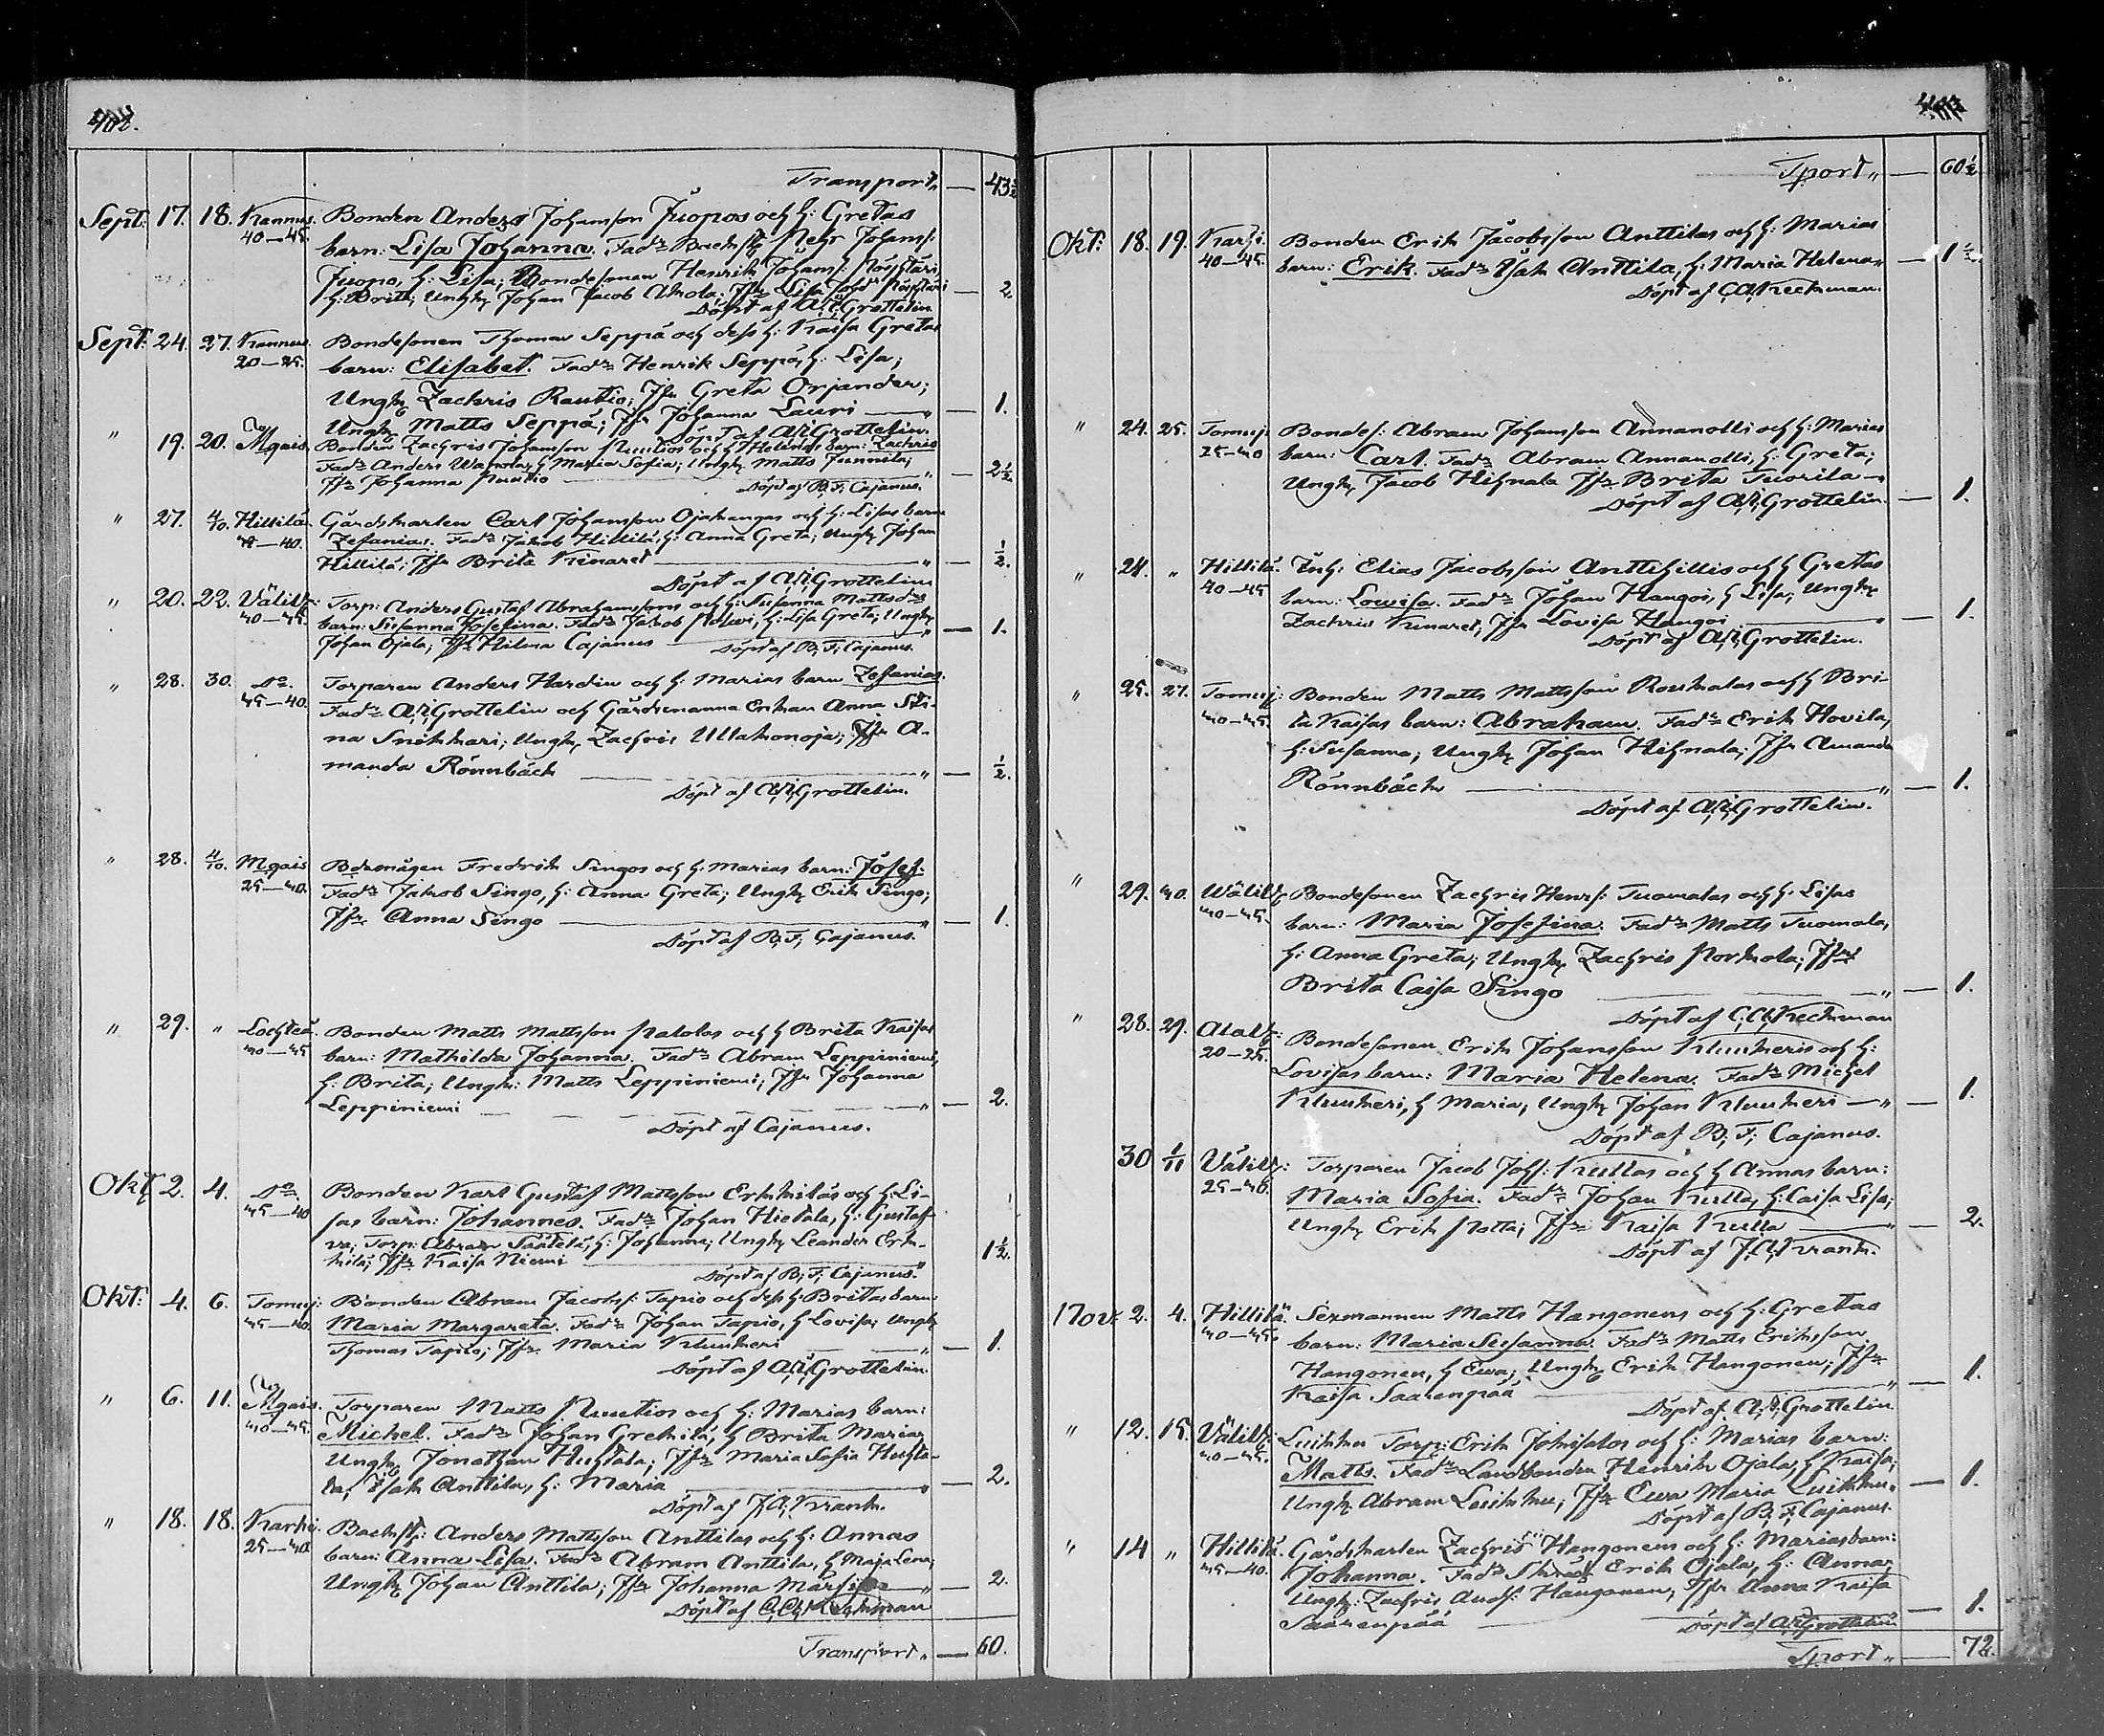 402.
Transport „ — 43½
Sept: 17. 18. Kannus. Bonden Anders Johansson Juopos och h: Gretas
40—45. barn: Lisa Johanna. Faddr Backstg Pehr Johans:
Juopo, h: Lisa; Bondesonen Henrik Johans: Pöyhtäri,
h: Brita; Ungk Johan Jacob Ahola; Jfr Lisa — 2.
Döpt af A. R. Grottelin.
Sept: 24. 27. Kannus. Bondesonen Thomas Seppä och dess h: Kaisa Gretas
20—25. barn: Elisabet. Faddr Henrik Seppä, h: Lisa;
Ungk Zachris Rautio; Jfr Greta Orjander;
Ungk Matts Seppä; Jfr Johanna Lauri — „ — 1.
Döpt af A. R. Grottelin.
„ 19. 20. Mgais. Bonden Zachris Johansson Ruutios och h Helenas barn: Zachris
Faddr Anders Wahrola, h Maria Sofia; Ungk Matts Junnila;
Jfr Johanna Ruutio — „ — 2½
Döpt af B. F. Cajanus.
„ 27. 4/10. Hillilä Gårdskarlen Carl Johansson Ojakangas och h: Lisas barn
—40. Zefanias. Faddr Jakob Hillilä, h: Anna Greta; Ungk Johan
Hillilä; Jfr Brita Kinaret — „ — ½.
Döpt af A. R. Grottelin
„ 20. 22. Välilk: Torp: Anders Gustaf Abrahamssons och h: Susanna Mattsdrs
40—45. barn: Susanna Josefina. Faddr Jakob Polwi, h: Lisa Greta; Ungk
Johan Ojala; Jfr Hilma Cajanus — „ — 1.
Döpt af B. F. Cajanus.
„ 28. 30. Do. Torparen Anders Hardin och h: Marias barn Zefanias.
35—40. Faddr A. R. Grottelin och Gårdsmanna Enkan Anna Sti-
na Snikkari; Ungk Zachris Ullakonoja; Jfr A-
manda Rönnbäck — „ — ½.
Döpt af A. R. Grottelin.
„ 28. 4/10. Mgais Bdemågen Fredrik Singos och h: Marias barn: Josef:
25—30. Faddr Jakob Singo, h: Anna Greta; Ungk Erik Singo;
Jfr Anna Singo — „ — 1.
Döpt af B. F. Cajanus.
„ 29. „ Lochteå. Bonden Matts Mattsson Palolas och h Brita Kaisas
40—45 barn: Mathilda Johanna. Faddr Abram Leppiniemi,
h: Brita; Ungk: Matts Leppiniemi; Jfr Johanna
Leppiniemi — „ — 2.
Döpt af Cajanus.
Okt 2. 4. Do. Bonden Karl Gustaf Mattsson Erkkiläs och h: Li-
35—40 sas barn: Johannes. Faddr Johan Hietala, h: Gustaf-
va; Torp: Abram Säätelä, h: Johanna; Ungk Leander Erk-
kilä; Jfr Kaisa Niemi — „ 1½.
Döpt af B. F. Cajanus.
Okt: 4. 6. Tomuj: Bonden Abram Jacobs: Tapio och dess h: Britas barn:
35—40. Maria Margareta. Faddr Johan Tapio, h Lovisa; Ungk
Thomas Tapio; Jfr Maria Kluukeri — „ — 1.
Döpt af A. R. Grottelin.
„ 6. 11. Mgais. Torparen Matts Ruutios och h: Marias barn:
40—45. Michel. Faddr Johan Grekilä, h Brita Maria;
Ungk Jonathan Huhtala; Jfr Maria Sofia Huhta-
la; Isak Anttila, h: Maria — „ — 2.
Döpt af J. A. Krank.
„ 18. 18. Karhi. Backstg: Anders Mattsson Anttilas och h: Annas
25—30 barn: Anna Lisa. Faddr Abram Anttila, h Maja Lena;
Ungk Johan Anttila; Jfr Johanna — „ — 2.
Döpt af C. A. Keckman
Transport „ — 60.
Tport „ — 60½
Okt: 18. 19. Karhi. Bonden Erik Jacobsson Anttilas och h: Marias
40—45. barn: Erik. Faddr Isak Anttila, h: Maria Helena „ — 1½
Döpt af C. A. Keckman.
„ 24. 25. Tomuj. Bondes: Abram Johansson Annanolli och h: Marias
25—30 barn: Carl. Faddr Abram Annanolli, h: Greta;
Ungk Jacob Hihnala Jfr Brita Tuorila — „ — 1.
Döpt af A. R. Grottelin
„ 24. „ Hillilä. Inh: Elias Jacobsson Anttihillis och h Gretas
40—45 barn: Lovisa. Faddr Johan Hangoi, h Lisa; Ungk
Zachris Kinaret; Jfr Lovisa Hangoi — „ — 1.
Döpt af A. R. Grottelin.
„ 25. 27. Tomuj: Bonden Matts Mattsson Roukalas och h Bri-
40—45. ta Kaisas barn: Abraham. Faddr Erik Hovila,
h: Susanna; Ungk Johan Hihnala; Jfr Amanda
Rönnbäck — „ — 1.
Döpt af A. R. Grottelin.
„ 29. 30. Wälilk Bondesonen Zachris Henrs: Tuomalas och h: Lisas
40—45. barn: Maria Josefina. Faddr Matts Tuomala,
h: Anna Greta; Ungk Zachris Porkola; Jfr
Brita Caisa Singo — „ — 1.
Döpt af C. A. Keckman
„ 28. 29. Alalk: Bondesonen Erik Johansson Kluukeris och h:
20—25. Lovisas barn: Maria Helena. Faddr Michel
Kluukeri, h Maria; Ungk Johan Kluukeri — „ — 1.
Döpt af B. F. Cajanus.
30 1/11 Välilk: Torparen Jacob Johs: Kullas och h Annas barn:
25—30. Maria Sofia. Faddr Johan Kulla, h: Caisa Lisa;
Ungk Erik Potta; Jfr Kaisa Kulla — „ — 2.
Döpt af J. A. Krank.
Nov: 2. 4. Hillilä. Sexmannen Matts Hangonens och h: Gretas
40—45. barn: Maria Susanna. Faddr Matts Eriksson
Hangonen, h Ewa; Ungk Erik Hangonen; Jfr
Kaisa Saarenpää — „ — 1.
Döpt af A. R. Grottelin
„ 12. 15. Välilk: Luikku Torp: Erik Jokisalos och h: Marias barn:
40—45. Matts. Faddr Landbonden Henrik Ojala, h Kaisa;
Ungk Abram Luikku; Jfr Ewa Maria Luikku. — 1.
Döpt af B. F. Cajanus.
„ 14 „ Hillilä. Gårdskarlen Zachris Hangonens och h: Marias barn:
35—40. Johanna. Faddr Skräd: Erik Ojala, h: Anna;
Ungk: Zachris Ands: Hangonen; Jfr Anna Kaisa
Saarenpää — 1.
Döpt af A. R. Grottelin
Tport „ — 72.